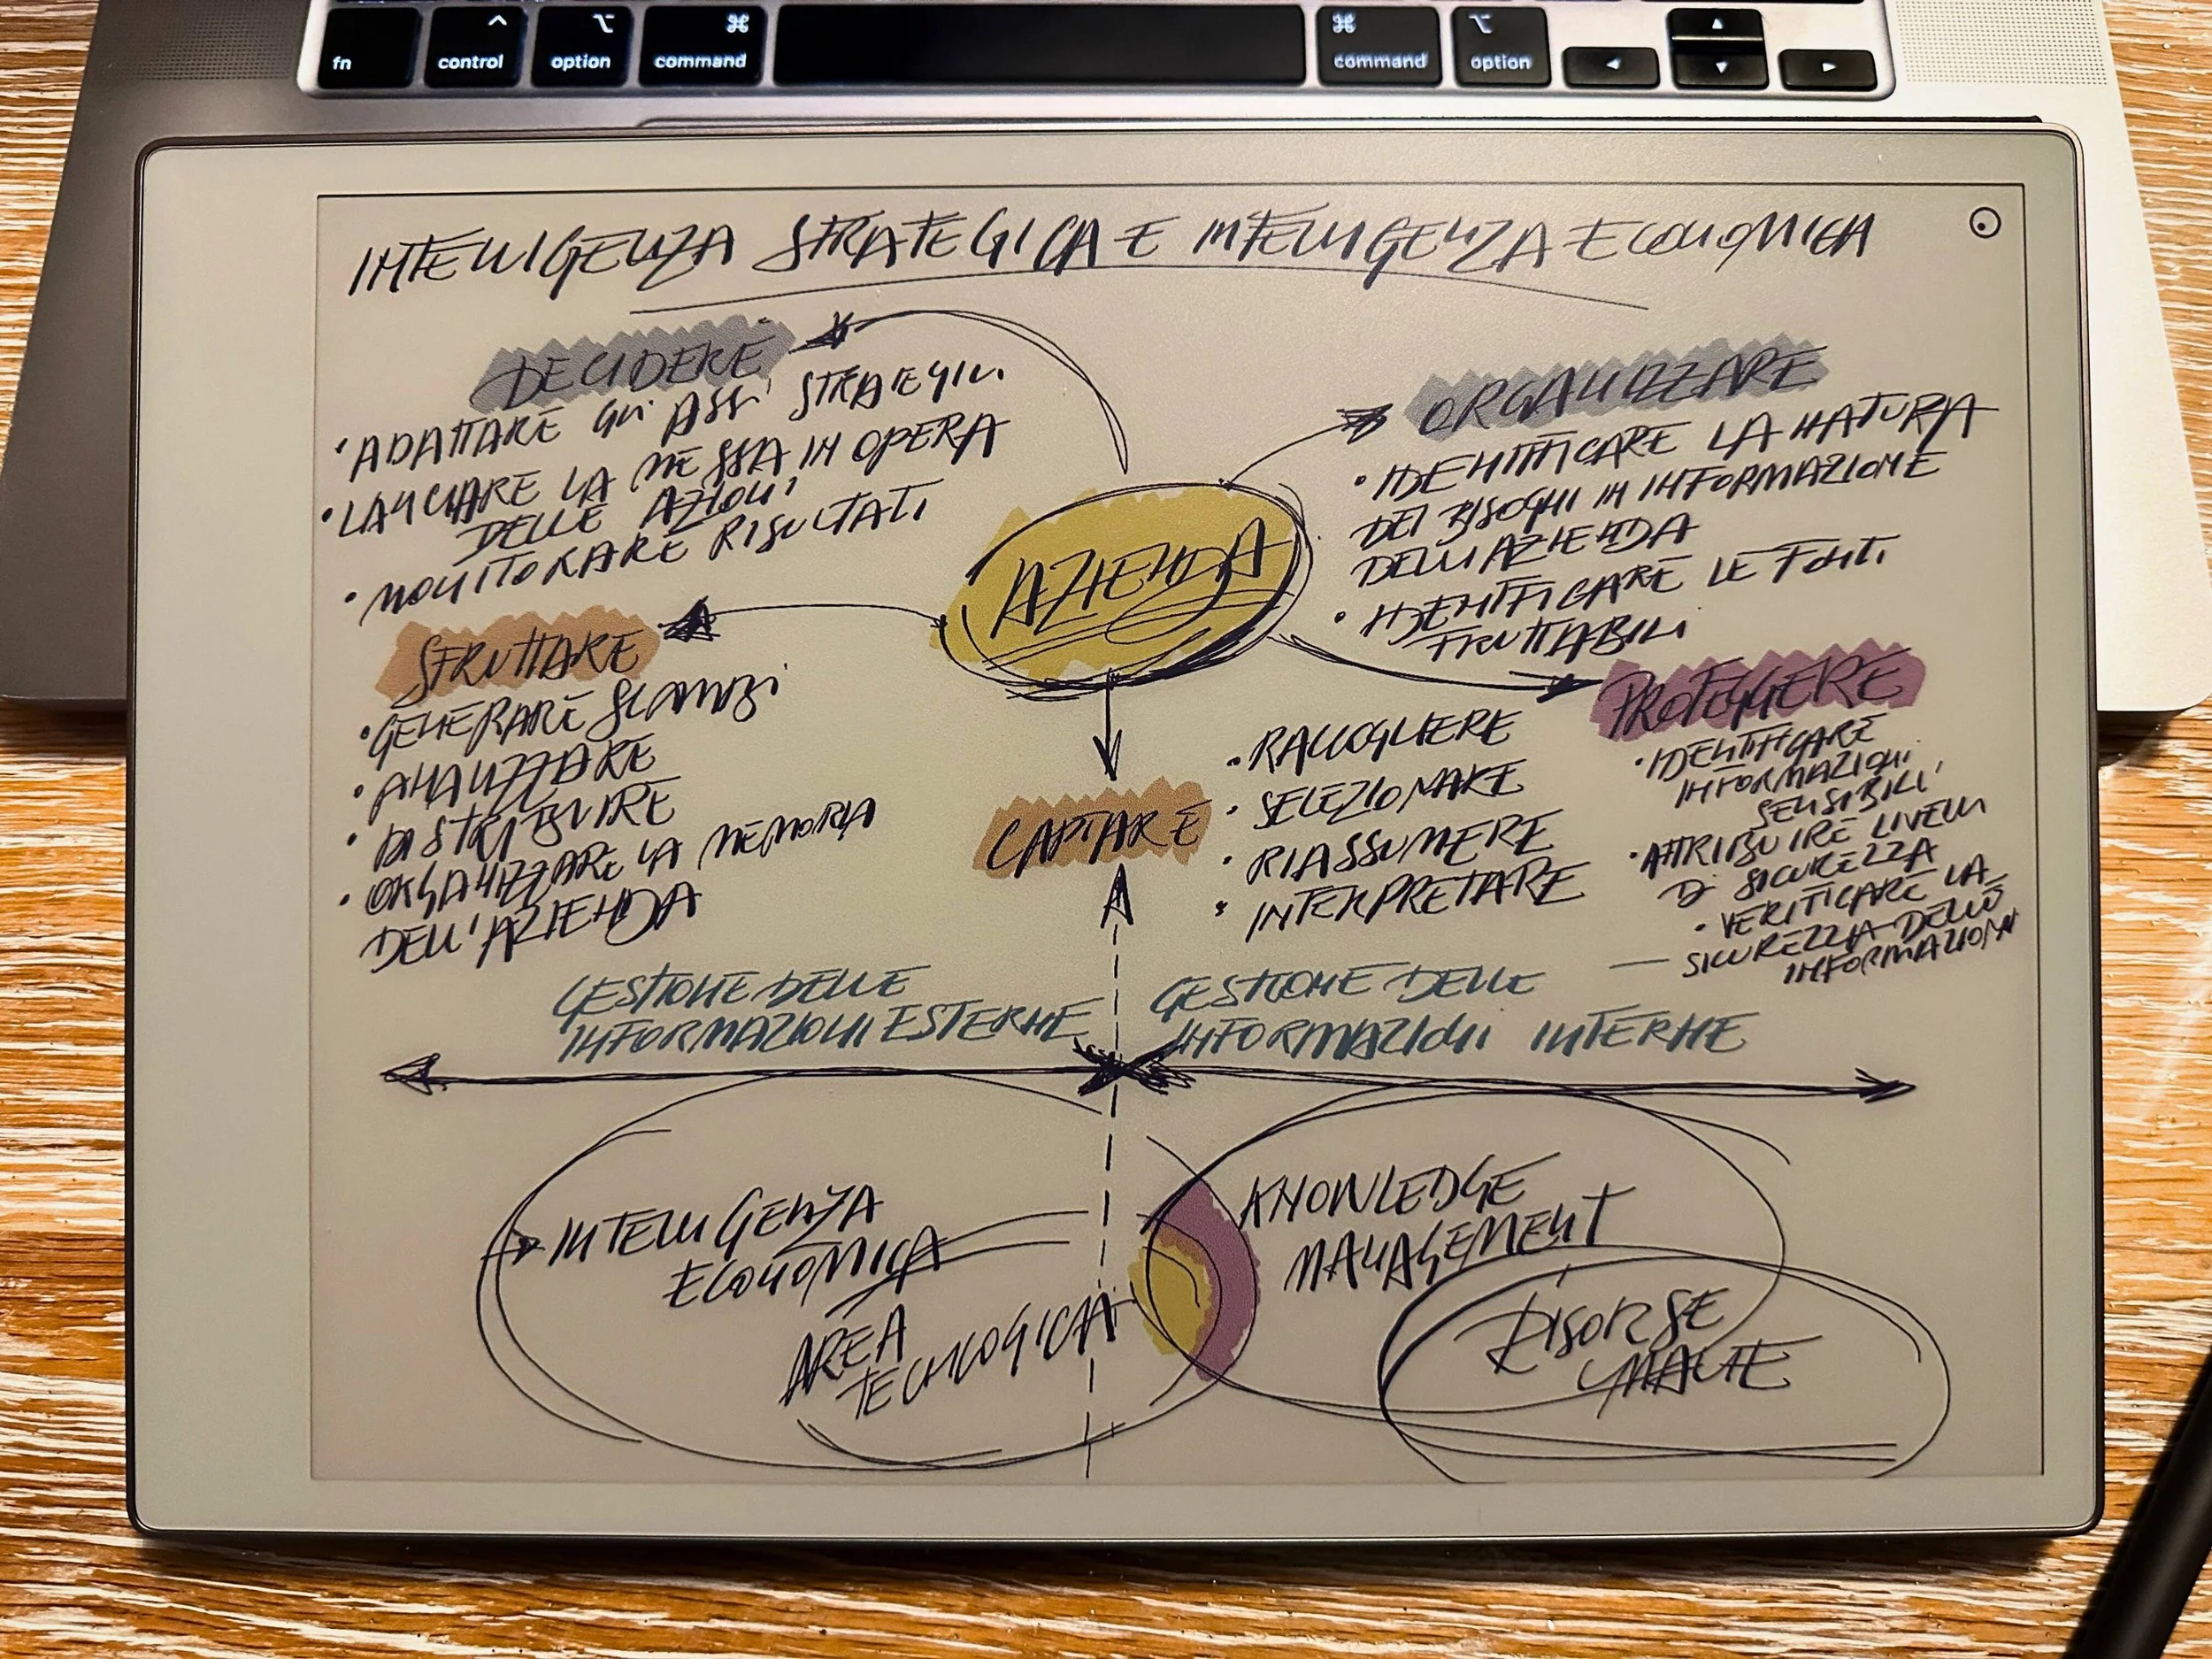 fn
control
option
command
command
option
INTELLIGENZA STRATEGICA E INTELLIGENZA ECONOMICA
DECIDERE
• ADATTARE GLI ASSI STRATEGICI
• LANCIARE LA MESSA IN OPERA
DELLE AZIONI
• MONITORARE RISULTATI
AZIENDA
ORGANIZZARE
• IDENTIFICARE LA NATURA
DEI BISOGNI IN INFORMAZIONE
DELL'AZIENDA
• IDENTIFICARE LE FONTI
FRUTTABILI
SFRUTTARE
• GENERARE SCAMBI
• ANALIZZARE
• DISTRIBUIRE
• ORGANIZZARE LA MEMORIA
DELL'AZIENDA
CAPTARE
• RACCOGLIERE
• SELEZIONARE
• RIASSUMERE
• INTERPRETARE
PROTEGGERE
• IDENTIFICARE
INFORMAZIONI
SENSIBILI
• ATTRIBUIRE LIVELLI
DI SICUREZZA
• VERIFICARE LA
SICUREZZA DELLE
INFORMAZIONI
GESTIONE DELLE
INFORMAZIONI ESTERNE
GESTIONE DELLE
INFORMAZIONI INTERNE
INTELLIGENZA
ECONOMICA
AREA
TECNOLOGICA
KNOWLEDGE
MANAGEMENT
RISORSE
UMANE